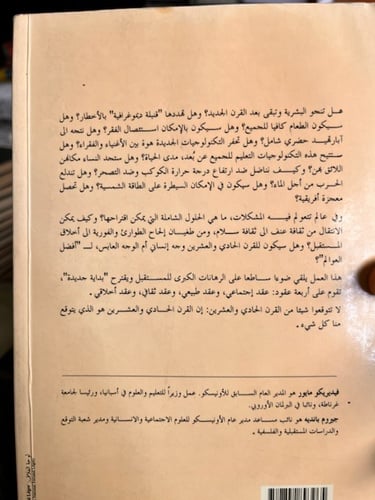 هل تنجو البشرية وتبقى بعد القرن الجديد؟ وهل تهددها "قنبلة ديموغرافية" بالأخطار؟ وهل
سيكون الطعام كافيا للجميع؟ وهل سيكون بالإمكان استئصال الفقر؟ وهل نتجه الى
آبارتهيد حضري شامل؟ وهل تحفر التكنولوجيات الجديدة هوة بين الأغنياء والفقراء؟ وهل
ستتيح هذه التكنولوجيات التعليم للجميع عن بُعد، مدى الحياة؟ وهل ستجد النساء مكانهن
اللائق بهن؟ وكيف نناضل ضد ارتفاع درجة حرارة الكوكب وضد التصحر؟ وهل تندلع
الحرب من أجل الماء؟ وهل سيكون في الإمكان السيطرة على الطاقة الشمسية؟ وهل تحصل
معجزة أفريقية؟
وفي عالم تتعولم فيه المشكلات، ما هي الحلول الشاملة التي يمكن اقتراحها؟ وكيف يمكن
الانتقال من ثقافة عنف الى ثقافة سلام، ومن طغيان إلحاح الطوارئ والفورية الى أخلاق
المستقبل؟ وهل سيكون للقرن الحادي والعشرين وجه إنساني أم الوجه العابس لـ "أفضل
العوالم"؟
هذا العمل يلقي ضوءا ساطعا على الرهانات الكبرى للمستقبل ويقترح "بداية جديدة"،
تقوم على أربعة عقود: عقد إجتماعي، وعقد طبيعي، وعقد ثقافي، وعقد أخلاقي.
لا تتوقعوا شيئا من القرن الحادي والعشرين: إن القرن الحادي والعشرين هو الذي يتوقع
منا كل شيء.
فيديريكو مايور هو المدير العام السابق للأونيسكو. عمل وزيراً للتعليم والعلوم في أسبانيا، ورئيسا لجامعة
غرناطة، ونائبا في البرلمان الأوروبي.
جيروم بانديه هو نائب مساعد مدير عام الأونيسكو للعلوم الاجتماعية والانسانية ومدير شعبة التوقع
والدراسات المستقبلية والفلسفية.